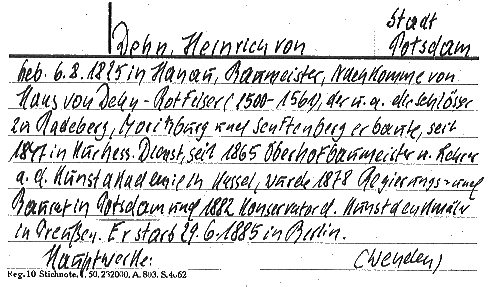 Stadt
Dehn, Heinrich von Potsdam
Geb. 6.8.1815 in Hanau, Baumeister, Nachkomme von
Hans von Dehn-Rotfelser (1500-1561), der u.a. die Schlösser
zu Radeberg, Moritzburg und Senftenberg erbaute, seit
1841 in Kurhess. Dienst, seit 1865 Oberhofbaumeister u. Lehrer
a. d. Kunstakademie in Kassel, wurde 1878 Regierungs- und
Baurat in Potsdam und 1882 Konservator d. Kunstdenkmäler
in Preußen. Er starb 29.6.1885 in Berlin.
Hauptwerke: (wenden)
Reg. 10 Stichnote. 50. 232000. A. 803. S. 4.62